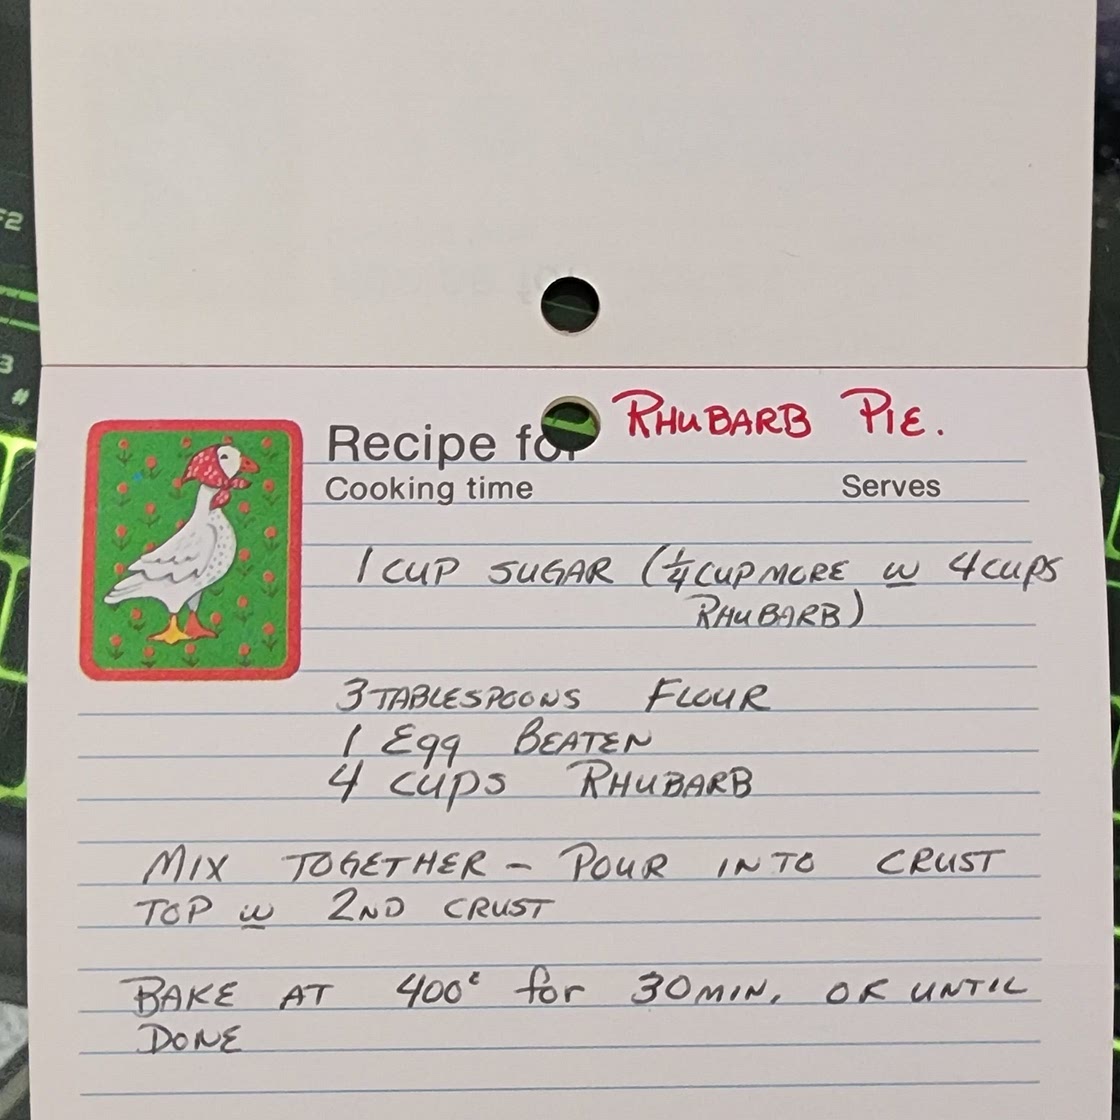 F2
3
#
Recipe for RHUBARB PIE.
Cooking time Serves
1 CUP SUGAR (1/4 CUP MORE w 4 CUPS
RHUBARB)
3 TABLESPOONS FLOUR
1 Egg BEATEN
4 CUPS RHUBARB
MIX TOGETHER – POUR INTO CRUST
TOP w 2ND CRUST
BAKE AT 400° for 30 MIN. OR UNTIL
DONE